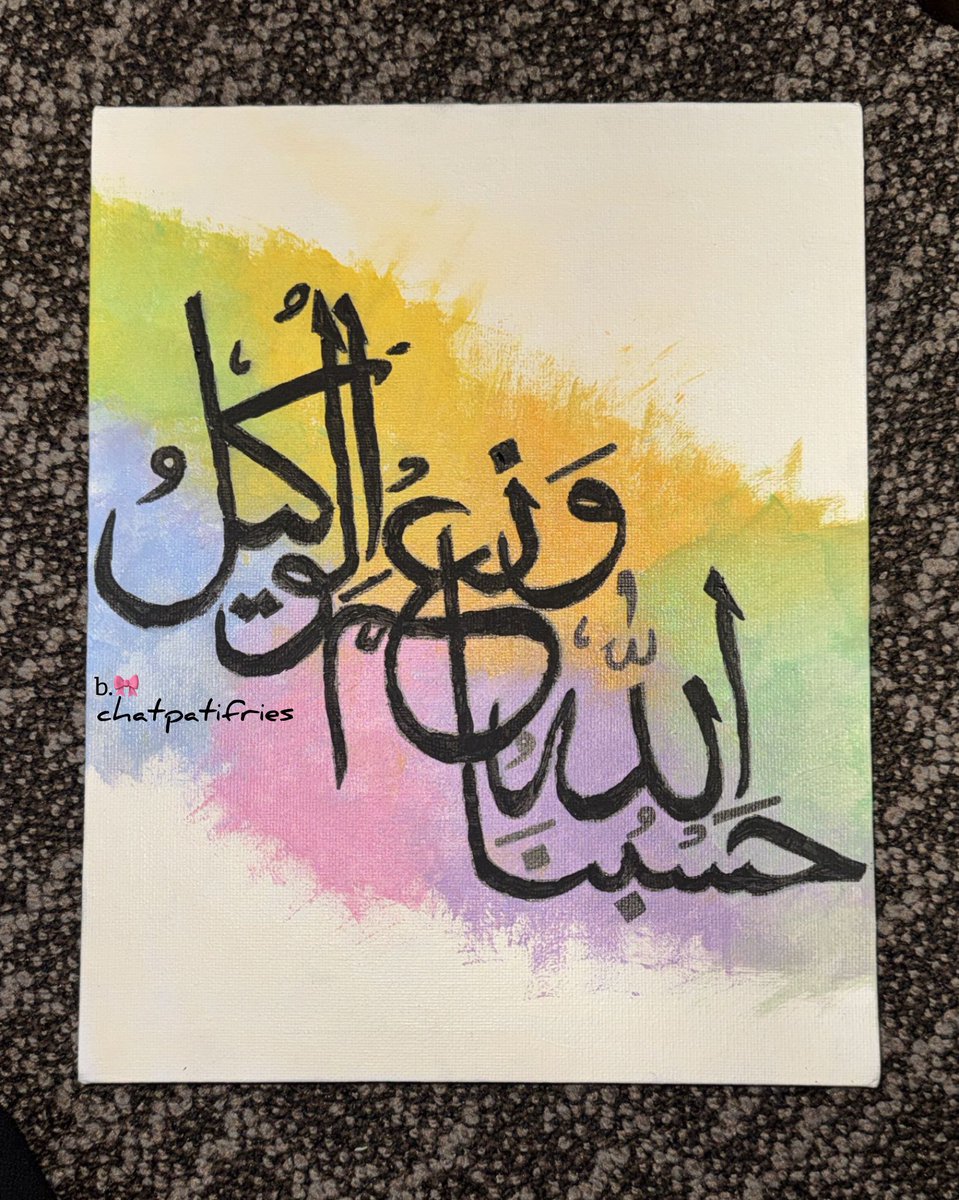 حَسْبُنَا اللّٰهُ
وَنِعْمَ الْوَكِيلُ
b.🎀
chatpatifries